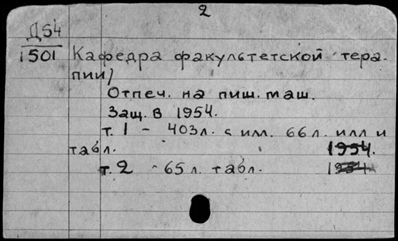 2
Д54
1501 Кафедра факультетской тера-
пии/
Отпеч. на пиш. маш.
Защ. в 1954.
т. 1 - 403л. с им. 66 л. илл и
табл. 1954.
т. 2 - 65 л. табл. 1954